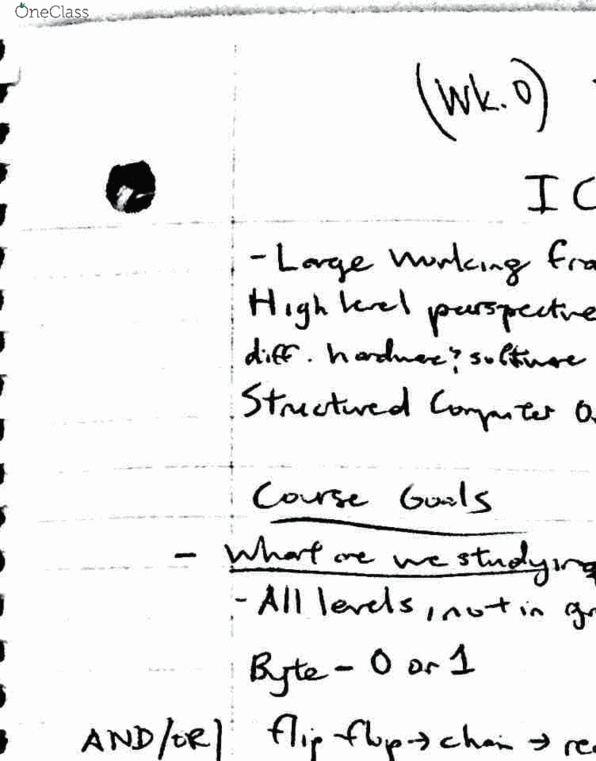 OneClass
(Wk.0)
I C
- Large working fra
High level perspective
diff. hardware & software
Structured Computer O
Course Goals
- What are we studying
- All levels, not in gr
Byte - 0 or 1
AND/OR] flip-flop → chain → re